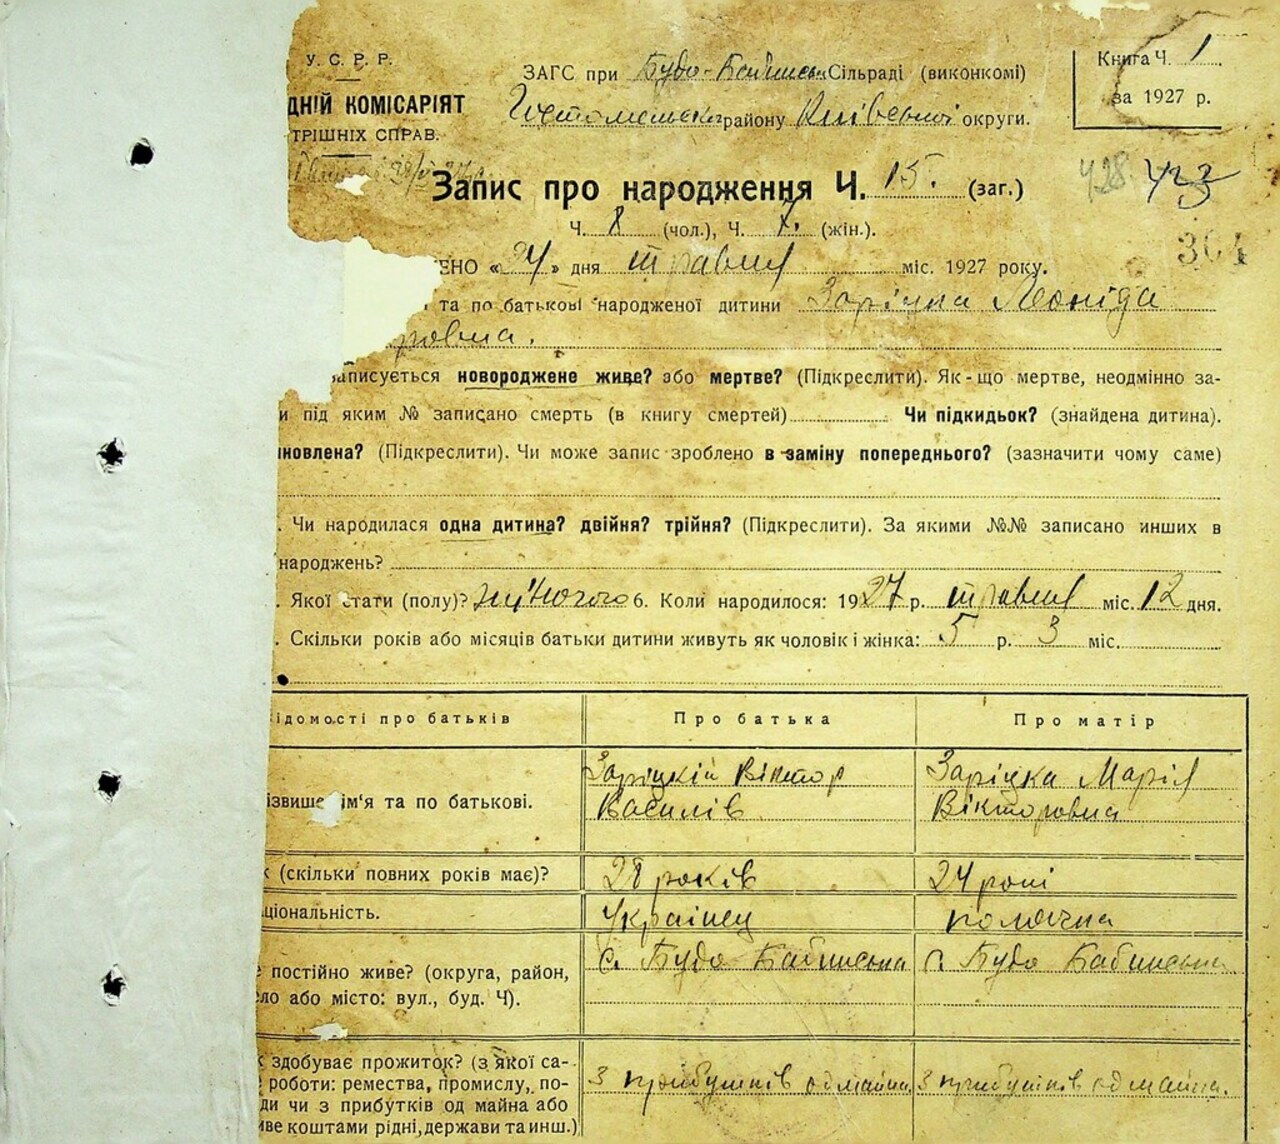 У. С. Р. Р.
ДНІЙ КОМІСАРІЯТ
ТРІШНІХ СПРАВ.
ЗАГС при Будо-Бабинськ Сільраді (виконкомі)
Гостомельськ району Київської округи.
Книга Ч. 1
за 1927 р.
428 423
Запис про народження Ч. 15. (заг.)
Ч. 8 (чол.), Ч. 7. (жін.).
304
ЕНО «24» дня травня міс. 1927 року.
та по батькові народженої дитини Заріцка Леоніда
ровна.
аписується новороджене живе? або мертве? (Підкреслити). Як-що мертве, неодмінно за-
и під яким № записано смерть (в книгу смертей) Чи підкидьок? (знайдена дитина).
новлена? (Підкреслити). Чи може запис зроблено в заміну попереднього? (зазначити чому саме)
. Чи народилася одна дитина? двійня? трійня? (Підкреслити). За якими №№ записано инших в
народжень?
. Якої стати (полу)? жіночого 6. Коли народилося: 1927 р. травня міс. 12 дня.
. Скільки років або місяців батьки дитини живуть як чоловік і жінка: 5 р. 3 міс.
ідомості про батьків Про батька Про матір
ізвище ім'я та по батькові. Заріцкій Віктор Василів Заріцка Марія Вікторовна
к (скільки повних років має)? 28 років 24 рокі
ціональність. Українец полячка
е постійно живе? (округа, район, с. Будо Бабинська с. Будо Бабинська
ло або місто: вул., буд. Ч).
к здобуває прожиток? (з якої са- З прибутків од майна З прибутків од майна.
е роботи: ремества, промислу, по-
ди чи з прибутків од майна або
иве коштами рідні, держави та инш.)